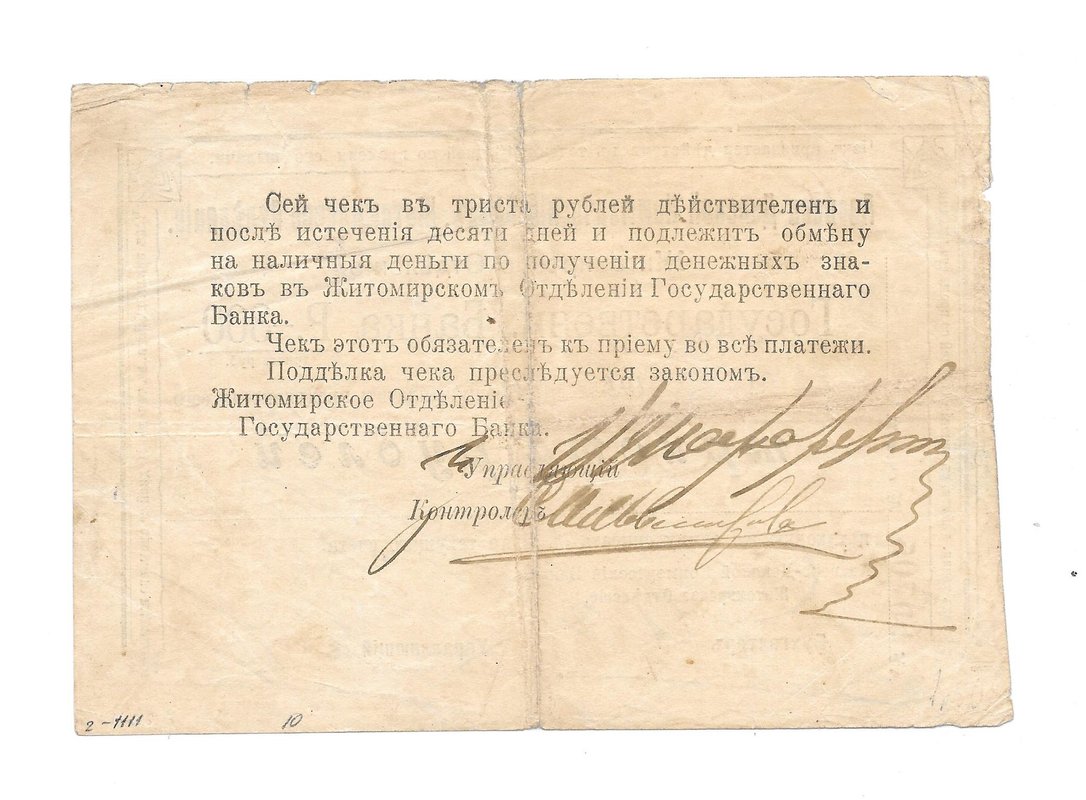 Сей чекъ въ триста рублей дѣйствителенъ и
послѣ истеченія десяти дней и подлежитъ обмѣну
на наличныя деньги по полученіи денежныхъ зна-
ковъ въ Житомирскомъ Отдѣленіи Государственнаго
Банка.
Чекъ этотъ обязателенъ къ пріему во всѣ платежи.
Поддѣлка чека преслѣдуется закономъ.
Житомирское Отдѣленіе
Государственнаго Банка.
Управляющій
Контролеръ
2-1111 10